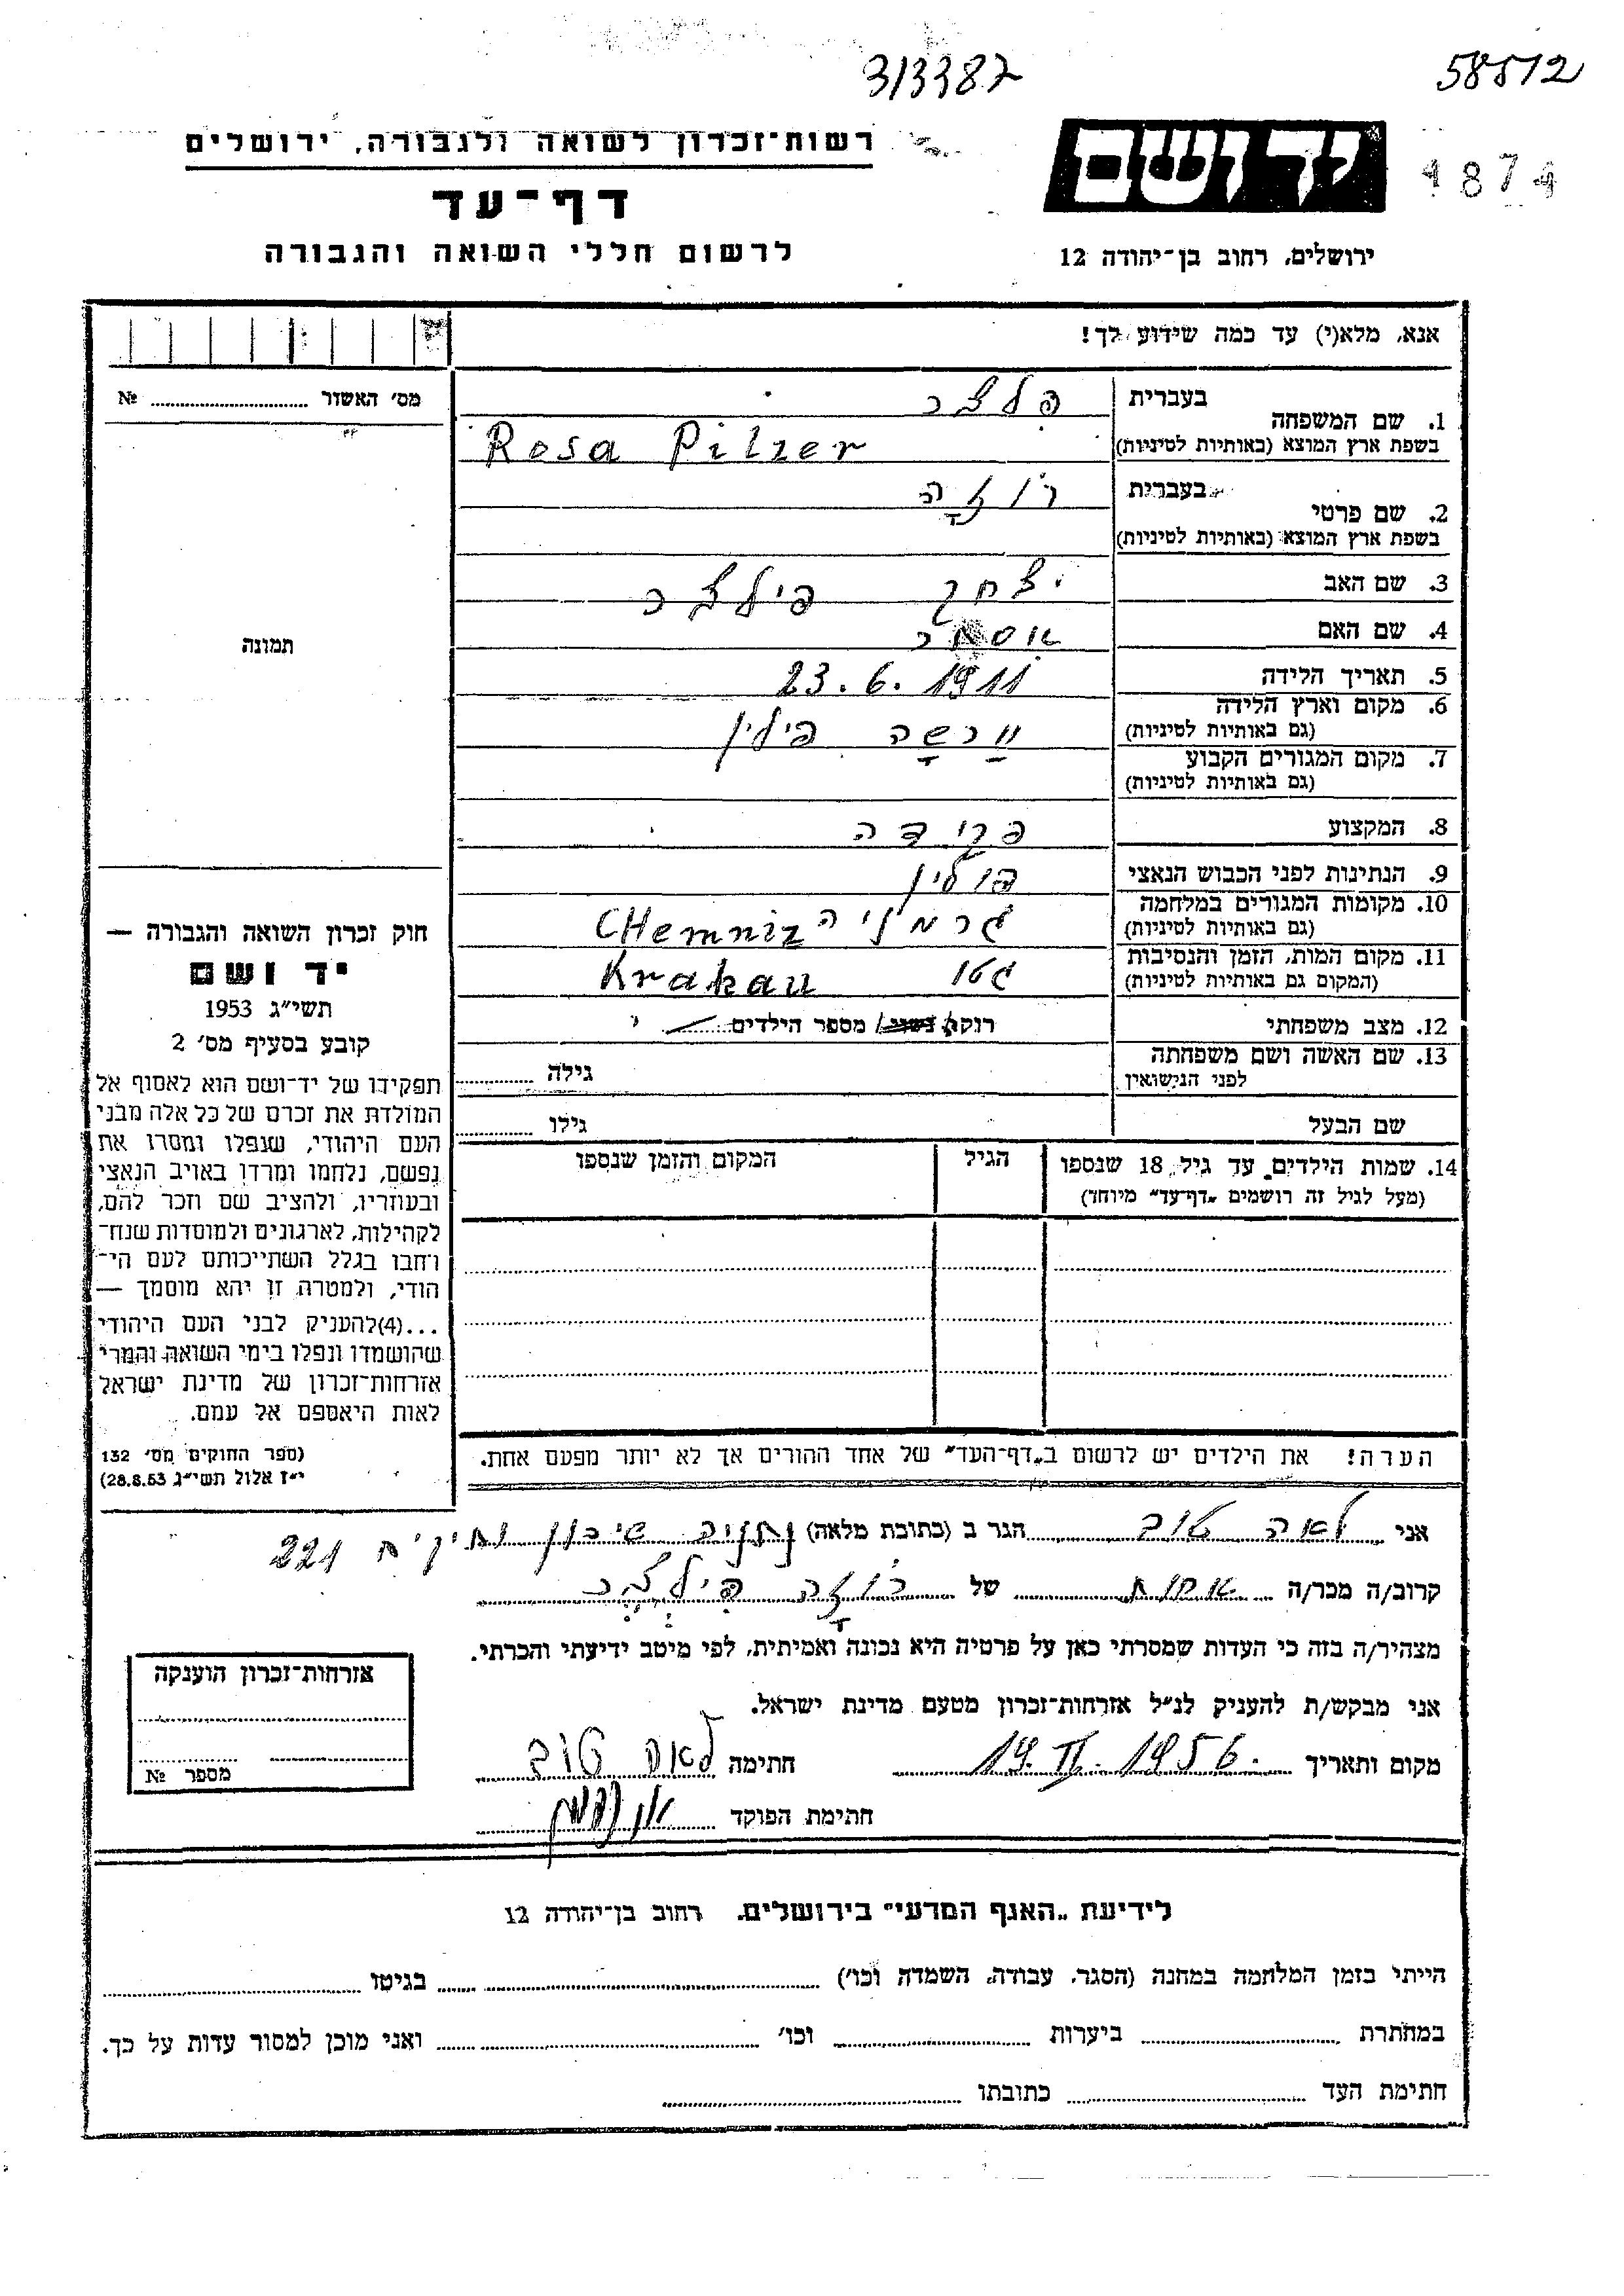 313387
58512
רשות־זכרון לשואה ולגבורה, ירושלים
יד ושם
1874
דף־עד
לרשום חללי השואה והגבורה
ירושלים, רחוב בן־יהודה 12
אנא, מלא(י) עד כמה שידוע לך!
מס' האשור № 
1. שם המשפחה בעברית פלצר
בשפת ארץ המוצא (באותיות לטיניות) Rosa Pilzer
2. שם פרטי בעברית רוזָה
בשפת ארץ המוצא (באותיות לטיניות)
3. שם האב יצחק פילצר
4. שם האם אסתר
5. תאריך הלידה 23.6.1911
6. מקום וארץ הלידה (גם באותיות לטיניות) וַרשָה פילין
7. מקום המגורים הקבוע (גם באותיות לטיניות)
8. המקצוע פקידה
9. הנתינות לפני הכבוש הנאצי פולין
10. מקומות המגורים במלחמה (גם באותיות לטיניות) גרמניה CHemniz
11. מקום המות, הזמן והנסיבות (המקום גם באותיות לטיניות) גטו Krakau
12. מצב משפחתי רוקה/נשוי/ מספר הילדים
13. שם האשה ושם משפחתה לפני הנישואין גילה
שם הבעל גילו
14. שמות הילדים עד גיל 18 שנספו (מעל לגיל זה רושמים "דף־עד" מיוחד) הגיל המקום והזמן שנספו
תמונה
חוק זכרון השואה והגבורה —
יד ושם
תשי"ג 1953
קובע בסעיף מס' 2
תפקידו של יד־ושם הוא לאסוף אל
המולדת את זכרם של כל אלה מבני
העם היהודי, שנפלו ומסרו את
נפשם, נלחמו ומרדו באויב הנאצי
ובעוזריו, ולהציב שם וזכר להם,
לקהילות, לארגונים ולמוסדות שנח־
רבו בגלל השתייכותם לעם הי־
הודי, ולמטרה זו יהא מוסמך —
...(4)להעניק לבני העם היהודי
שהושמדו ונפלו בימי השואה והמרי
אזרחות־זכרון של מדינת ישראל
לאות היאספם אל עמם.
(ספר החוקים מס' 132
י"ז אלול תשי"ג 28.8.53)
הערה! את הילדים יש לרשום ב"דף־העד" של אחד ההורים אך לא יותר מפעם אחת.
אני לאה טוב הגר ב (כתובת מלאה) שיכון 221
קרוב/ה מכר/ה אחות של רוזָה פילצר
מצהיר/ה בזה כי העדות שמסרתי כאן על פרטיה היא נכונה ואמיתית, לפי מיטב ידיעתי והכרתי.
אני מבקש/ת להעניק לנ"ל אזרחות־זכרון מטעם מדינת ישראל.
מקום ותאריך 19.II.1956 חתימה לאה טוב
חתימת הפוקד
אזרחות־זכרון הוענקה
מספר №
לידיעת "האגף המדעי" בירושלים, רחוב בן־יהודה 12
הייתי בזמן המלחמה במחנה (הסגר, עבודה, השמדה וכו') בגיטו
במחתרת ביערות וכו' ואני מוכן למסור עדות על כך.
חתימת העד כתובתו